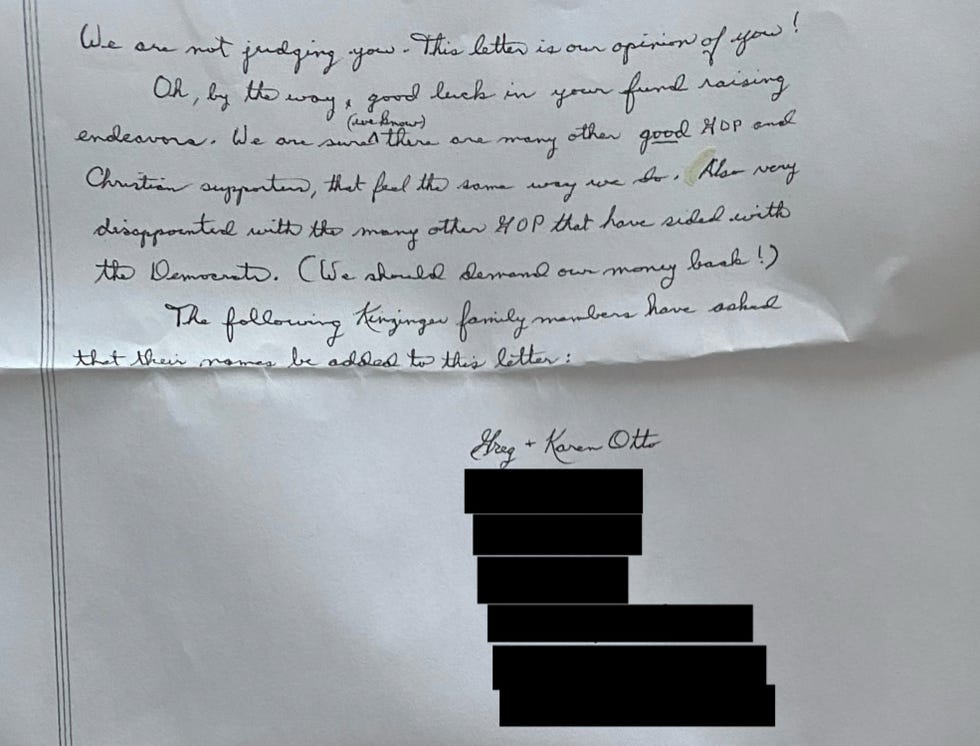 We are not judging you. This letter is our opinion of you!
Oh, by the way, good luck in your fund raising
endeavors. We are sure (we know) there are many other good GOP and
Christian supporters, that feel the same way we do. Also very
disappointed with the many other GOP that have sided with
the Democrats. (We should demand our money back!)
The following Kinzinger family members have asked
that their names be added to this letter:
Greg + Karen Otto